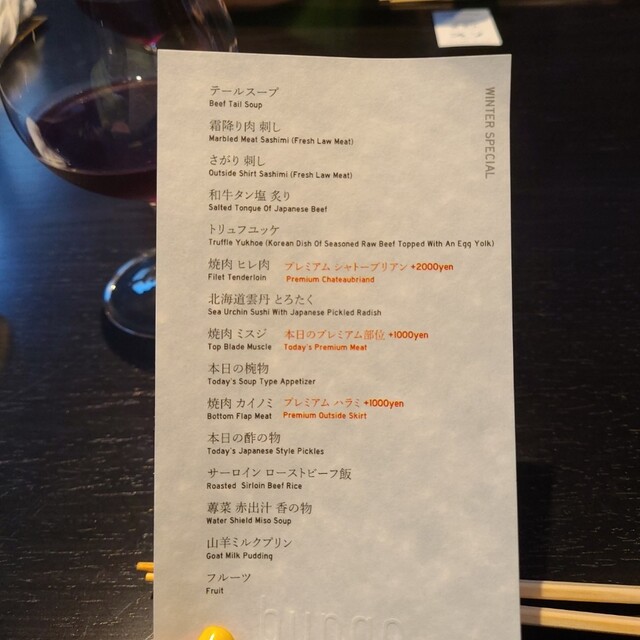 WINTER SPECIAL
テールスープ
Beef Tail Soup
霜降り肉 刺し
Marbled Meat Sashimi (Fresh Law Meat)
さがり 刺し
Outside Shirt Sashimi (Fresh Law Meat)
和牛タン塩 炙り
Salted Tongue Of Japanese Beef
トリュフユッケ
Truffle Yukhoe (Korean Dish Of Seasoned Raw Beef Topped With An Egg Yolk)
焼肉 ヒレ肉 プレミアム シャトーブリアン +2000yen
Filet Tenderloin Premium Chateaubriand
北海道雲丹 とろたく
Sea Urchin Sushi With Japanese Pickled Radish
焼肉 ミスジ 本日のプレミアム部位 +1000yen
Top Blade Muscle Today's Premium Meat
本日の椀物
Today's Soup Type Appetizer
焼肉 カイノミ プレミアム ハラミ +1000yen
Bottom Flap Meat Premium Outside Skirt
本日の酢の物
Today's Japanese Style Pickles
サーロイン ローストビーフ飯
Roasted Sirloin Beef Rice
蓴菜 赤出汁 香の物
Water Shield Miso Soup
山羊ミルクプリン
Goat Milk Pudding
フルーツ
Fruit